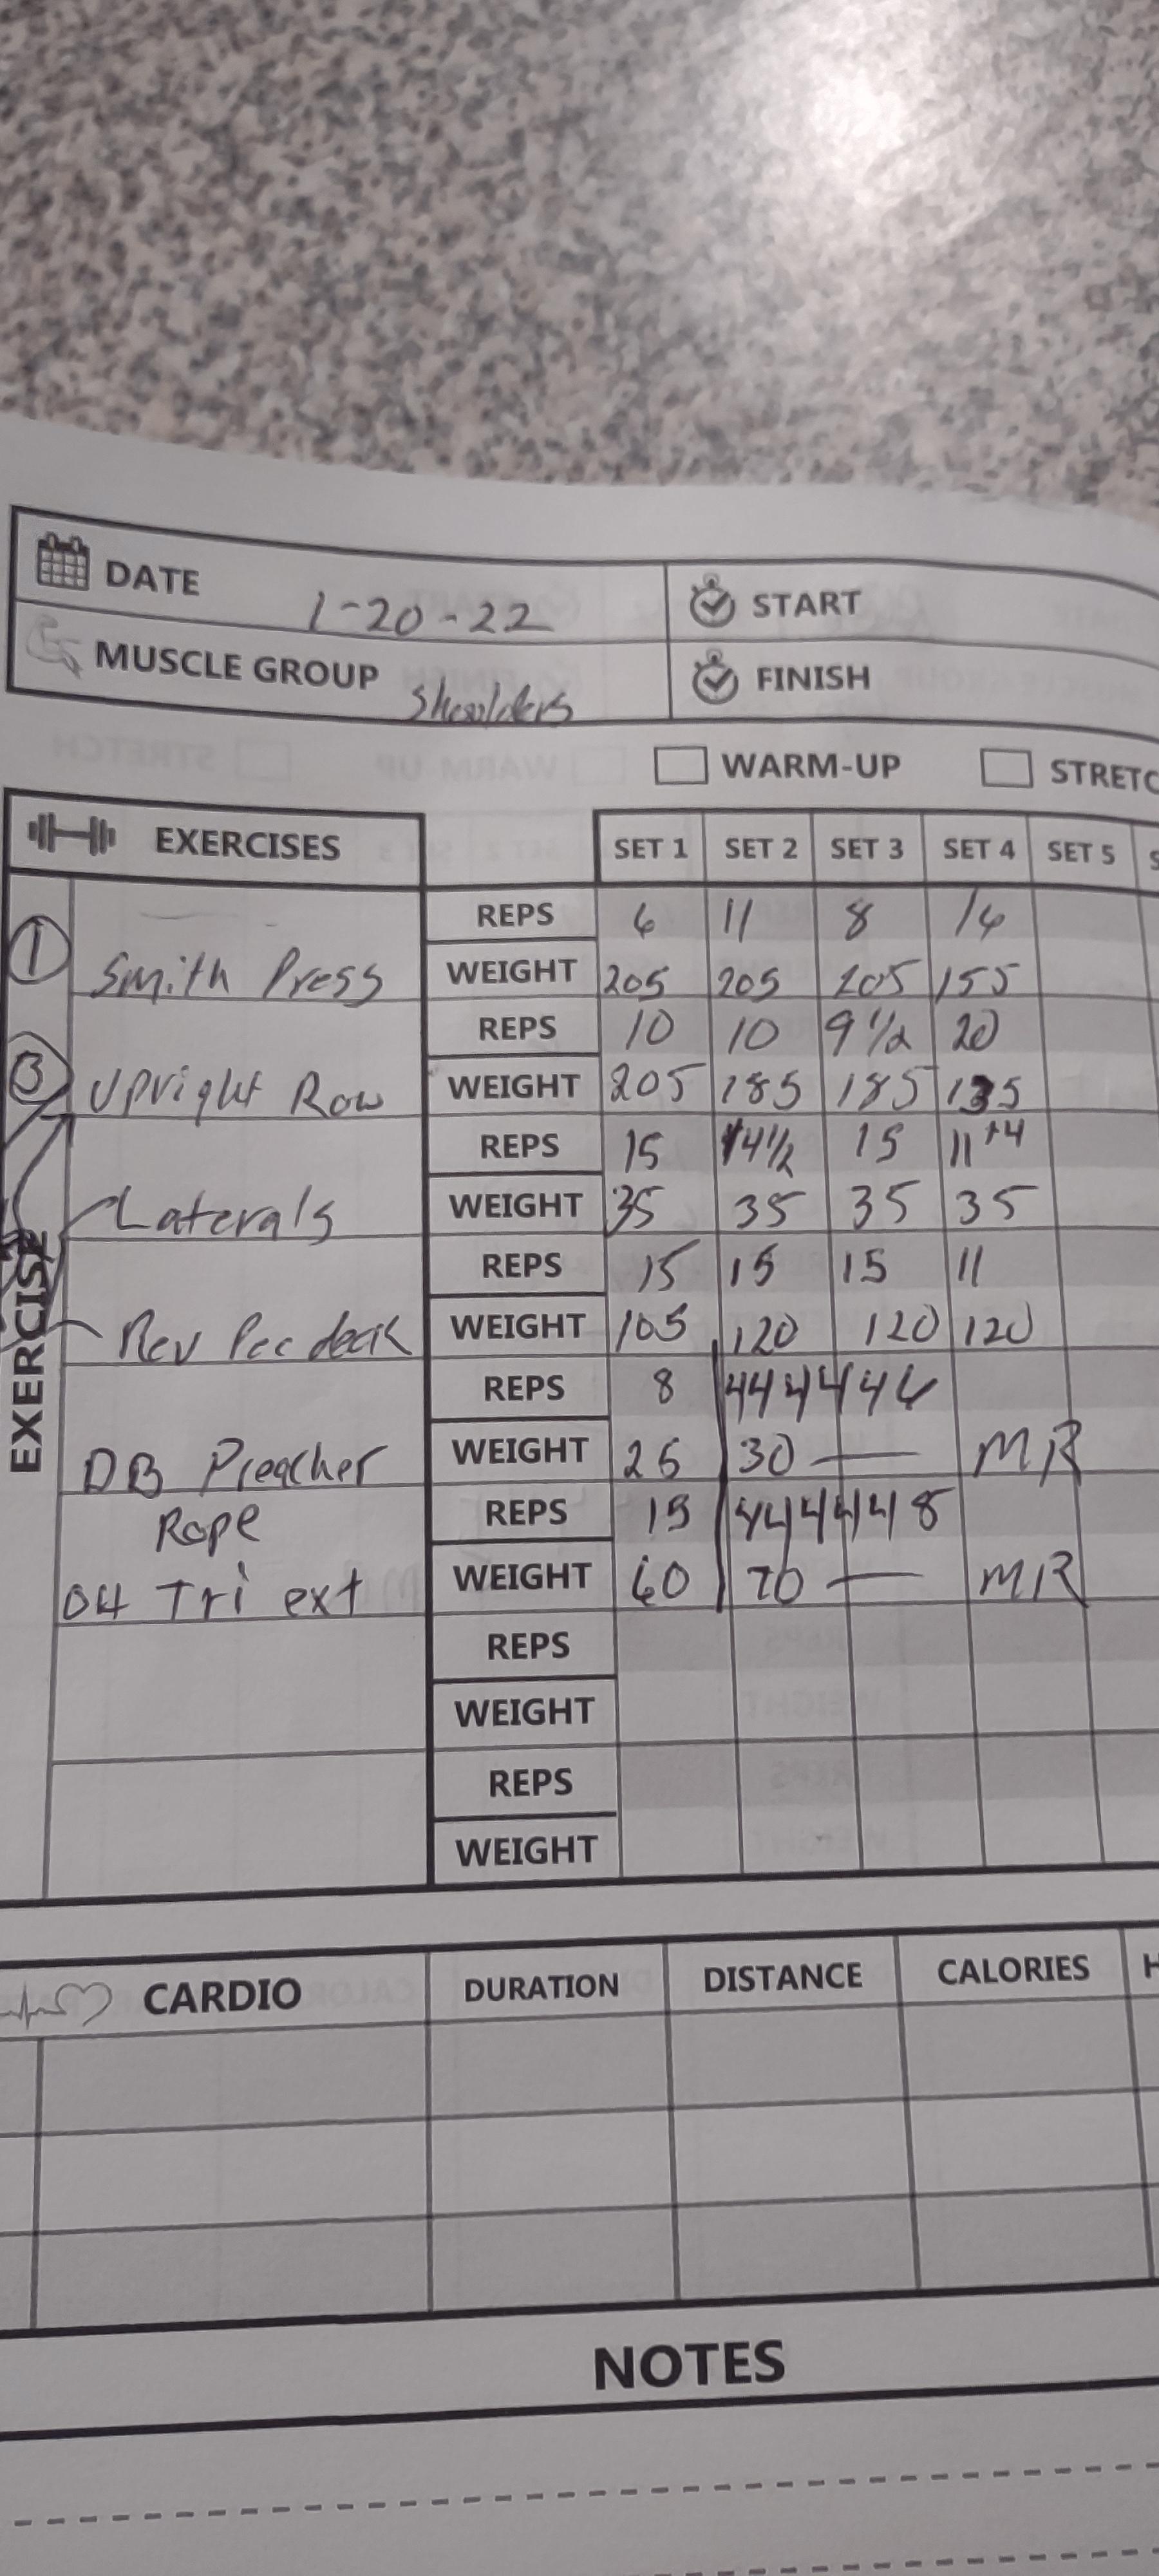 DATE 1-20-22 START
MUSCLE GROUP Shoulders FINISH
WARM-UP STRETC
EXERCISES SET 1 SET 2 SET 3 SET 4 SET 5 S
REPS 6 11 8 16
1 Smith Press WEIGHT 205 205 205 155
REPS 10 10 9 1/2 20
3 Upright Row WEIGHT 205 185 185 135
REPS 15 14 1/2 15 11 +4
Laterals WEIGHT 35 35 35 35
REPS 15 15 15 11
Rev Pec deck WEIGHT 105 120 120 120
REPS 8 4 4 4 4 4 6
DB Preacher WEIGHT 25 30 — MR
Rope REPS 15 4 4 4 4 4 8
OH Tri ext WEIGHT 60 70 — MR
REPS
WEIGHT
REPS
WEIGHT
EXERCISE
CARDIO DURATION DISTANCE CALORIES H
NOTES